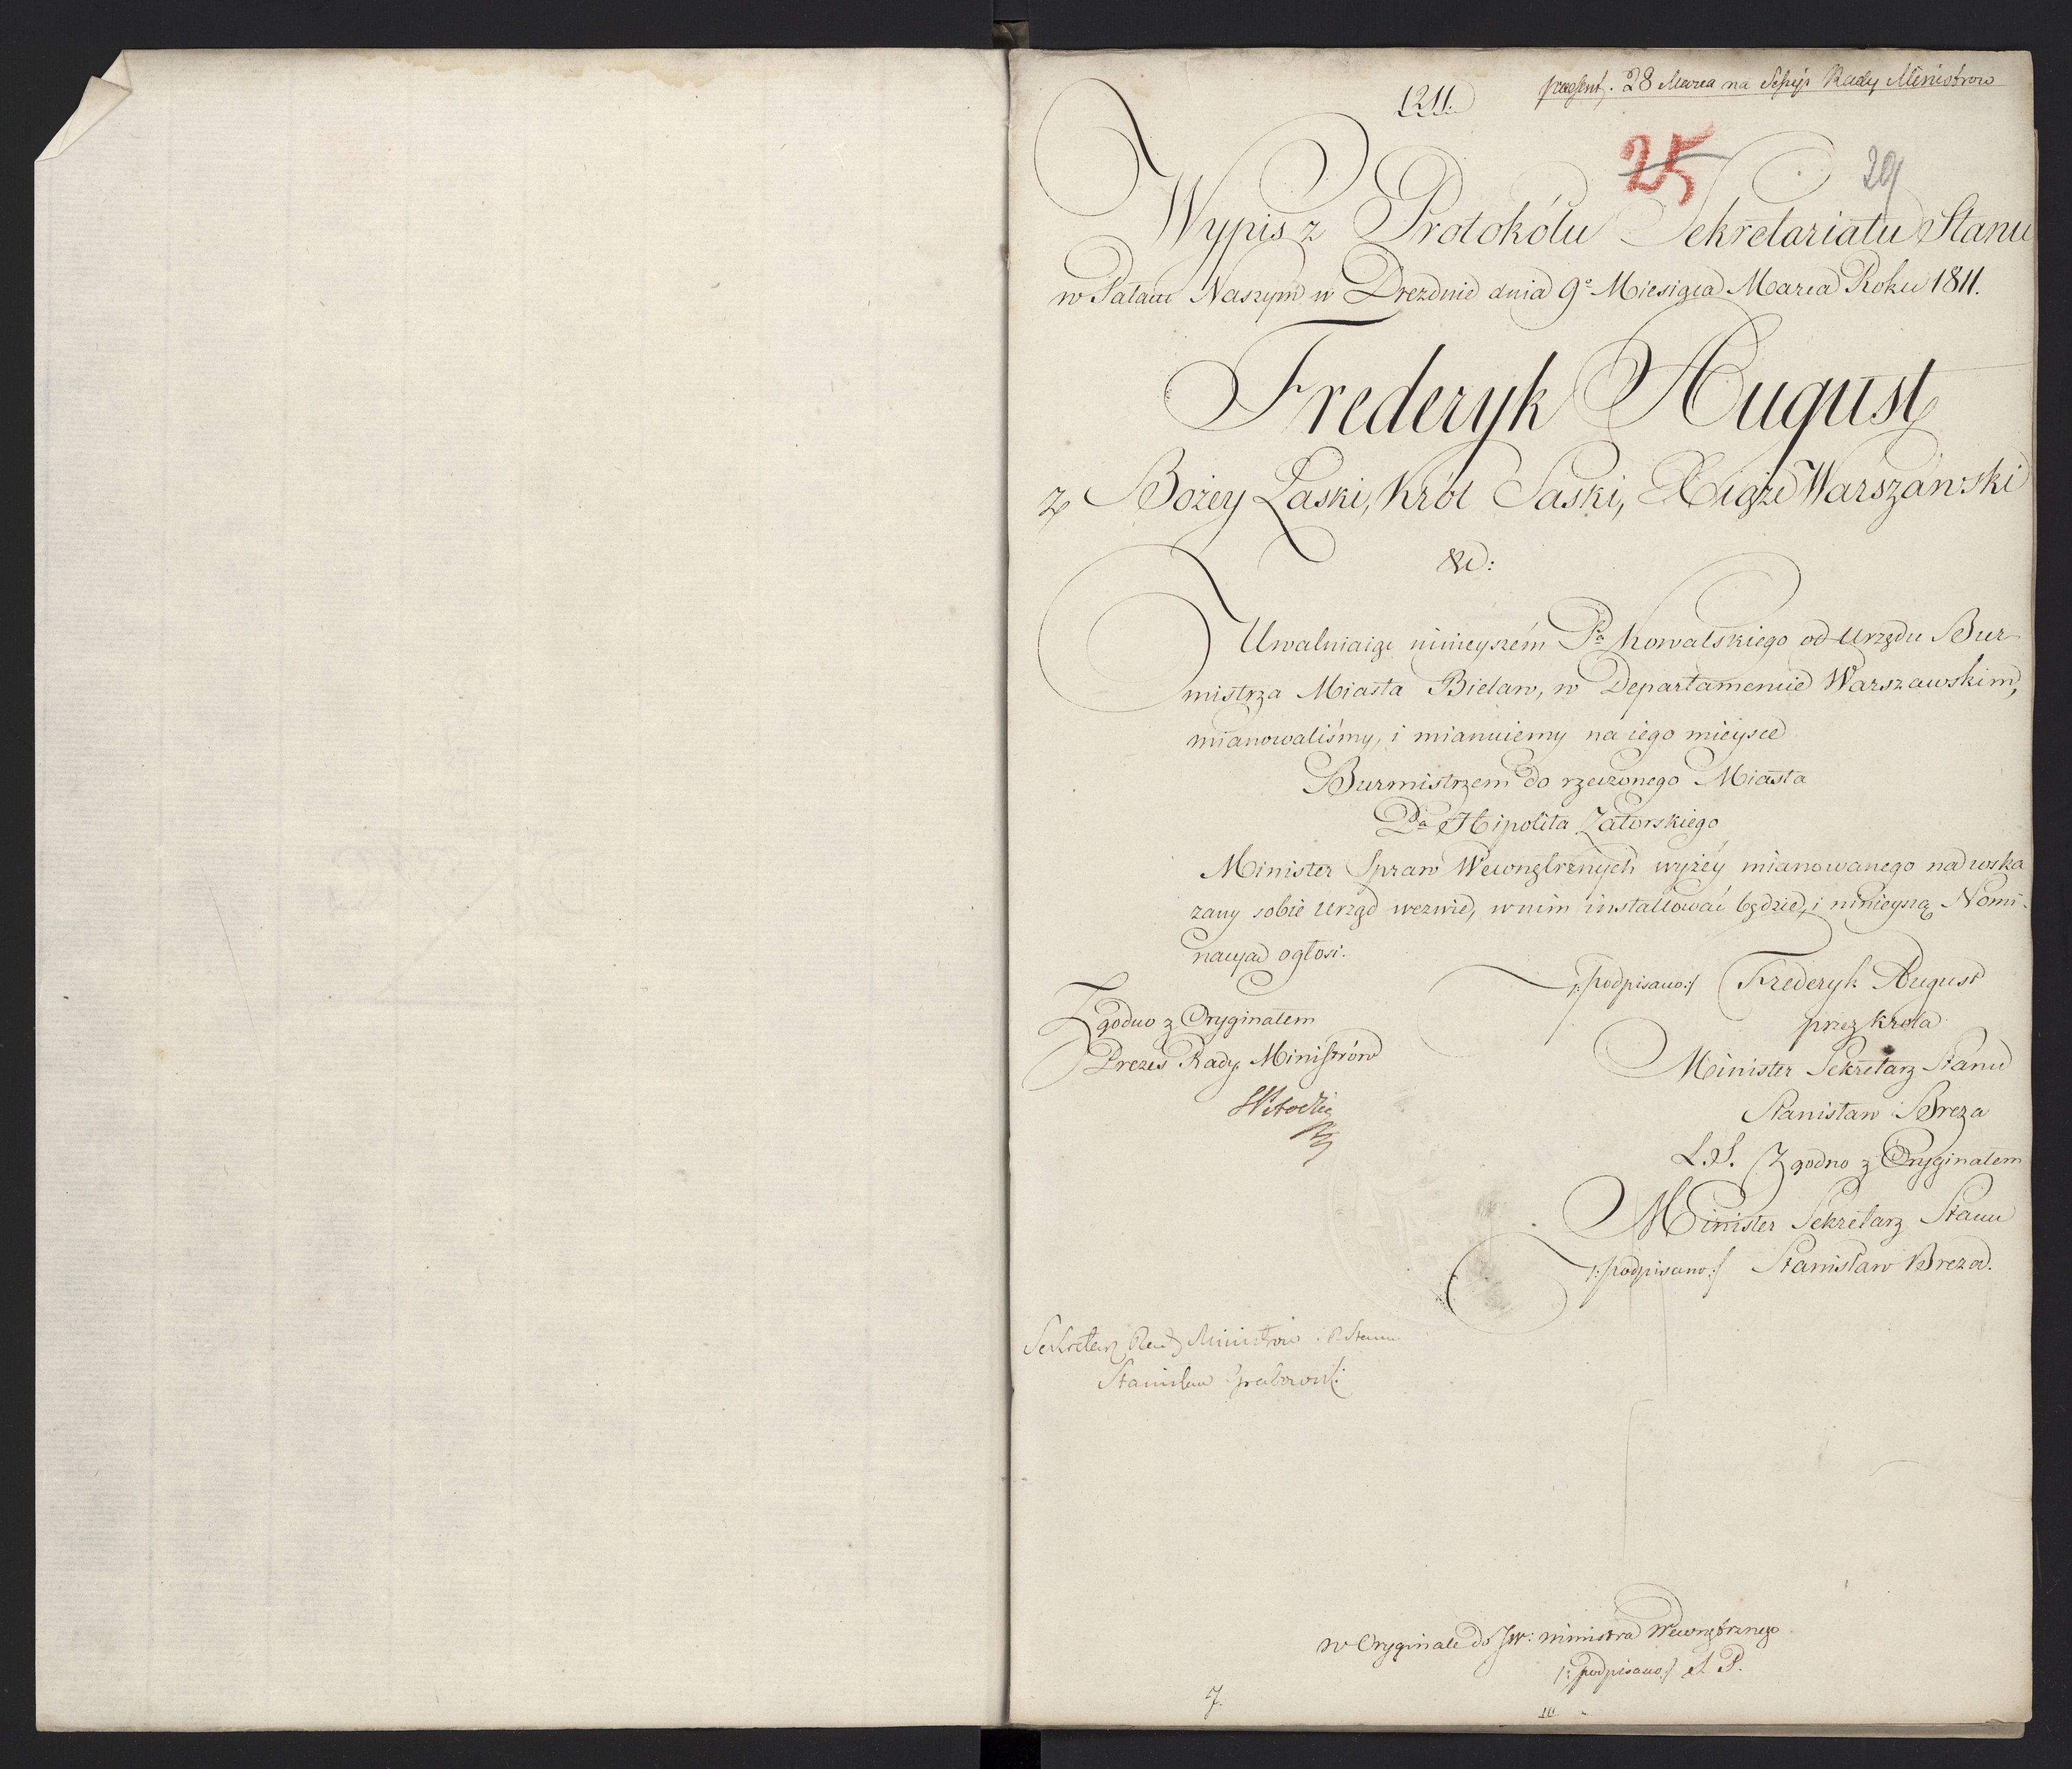 1211.
praesent. 28 Marca na Sessyi Rady Ministrow
25
29
Wypis z Protokółu Sekretariatu Stanu
w Pałacu Naszym w Dreznie dnia 9º Miesiąca Marca Roku 1811.
Frederyk August
z Bożey Łaski, Król Saski, Xiąże Warszawski
&c:
Uwalniaiąc ninieyszém Pª Kowalskiego od Urzędu Bur-
mistrza Miasta Bielaw, w Departamencie Warszawskim,
mianowaliśmy, i mianuiemy na iego mieysce
Burmistrzem do rzeczonego Miasta
Pª Hipolita Zatorskiego
Minister Spraw Wewnętrznych wyżéy mianowanego na wska
zany sobie Urząd wezwie, w nim installować będzie, i ninieyszą Nomi-
nacyą ogłosi.
/:podpisano:/ Frederyk August
przez Króla
Minister Sekretarz Stanu
Stanisław Breza
L.S. Zgodno z Oryginałem
Minister Sekretarz Stanu
/:podpisano:/ Stanisław Breza.
Zgodno z Oryginałem
Prezes Rady Ministrów
Sekretarz Rady Ministrow i R. Stanu
Stanisław Grabowski
w Oryginale do JW: Ministra Wewnętrznego
/:podpisano:/ S. B.
7.